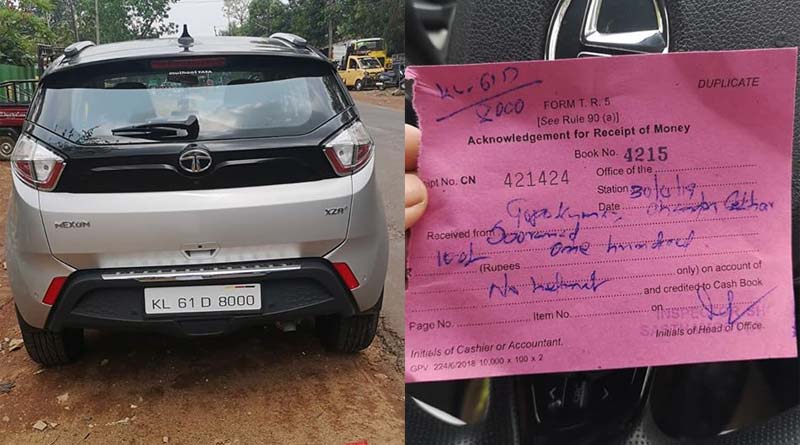 mutheni TATA
NEXON
XZA+
KL 61 D 8000
KL. 61 D
8000
DUPLICATE
FORM T. R. 5
[See Rule 90 (a)]
Acknowledgement for Receipt of Money
Book No. 4215
ipt No. CN 421424 Office of the
Station
Date 30/ /19
Received from
(Rupees one hundred only) on account of
No helmet and credited to Cash Book
Page No. Item No. on
INSPECT SH
SASTHA
Initials of Head of Office.
Initials of Cashier or Accountant.
GPV. 224/6/2018 10,000 × 100 × 2